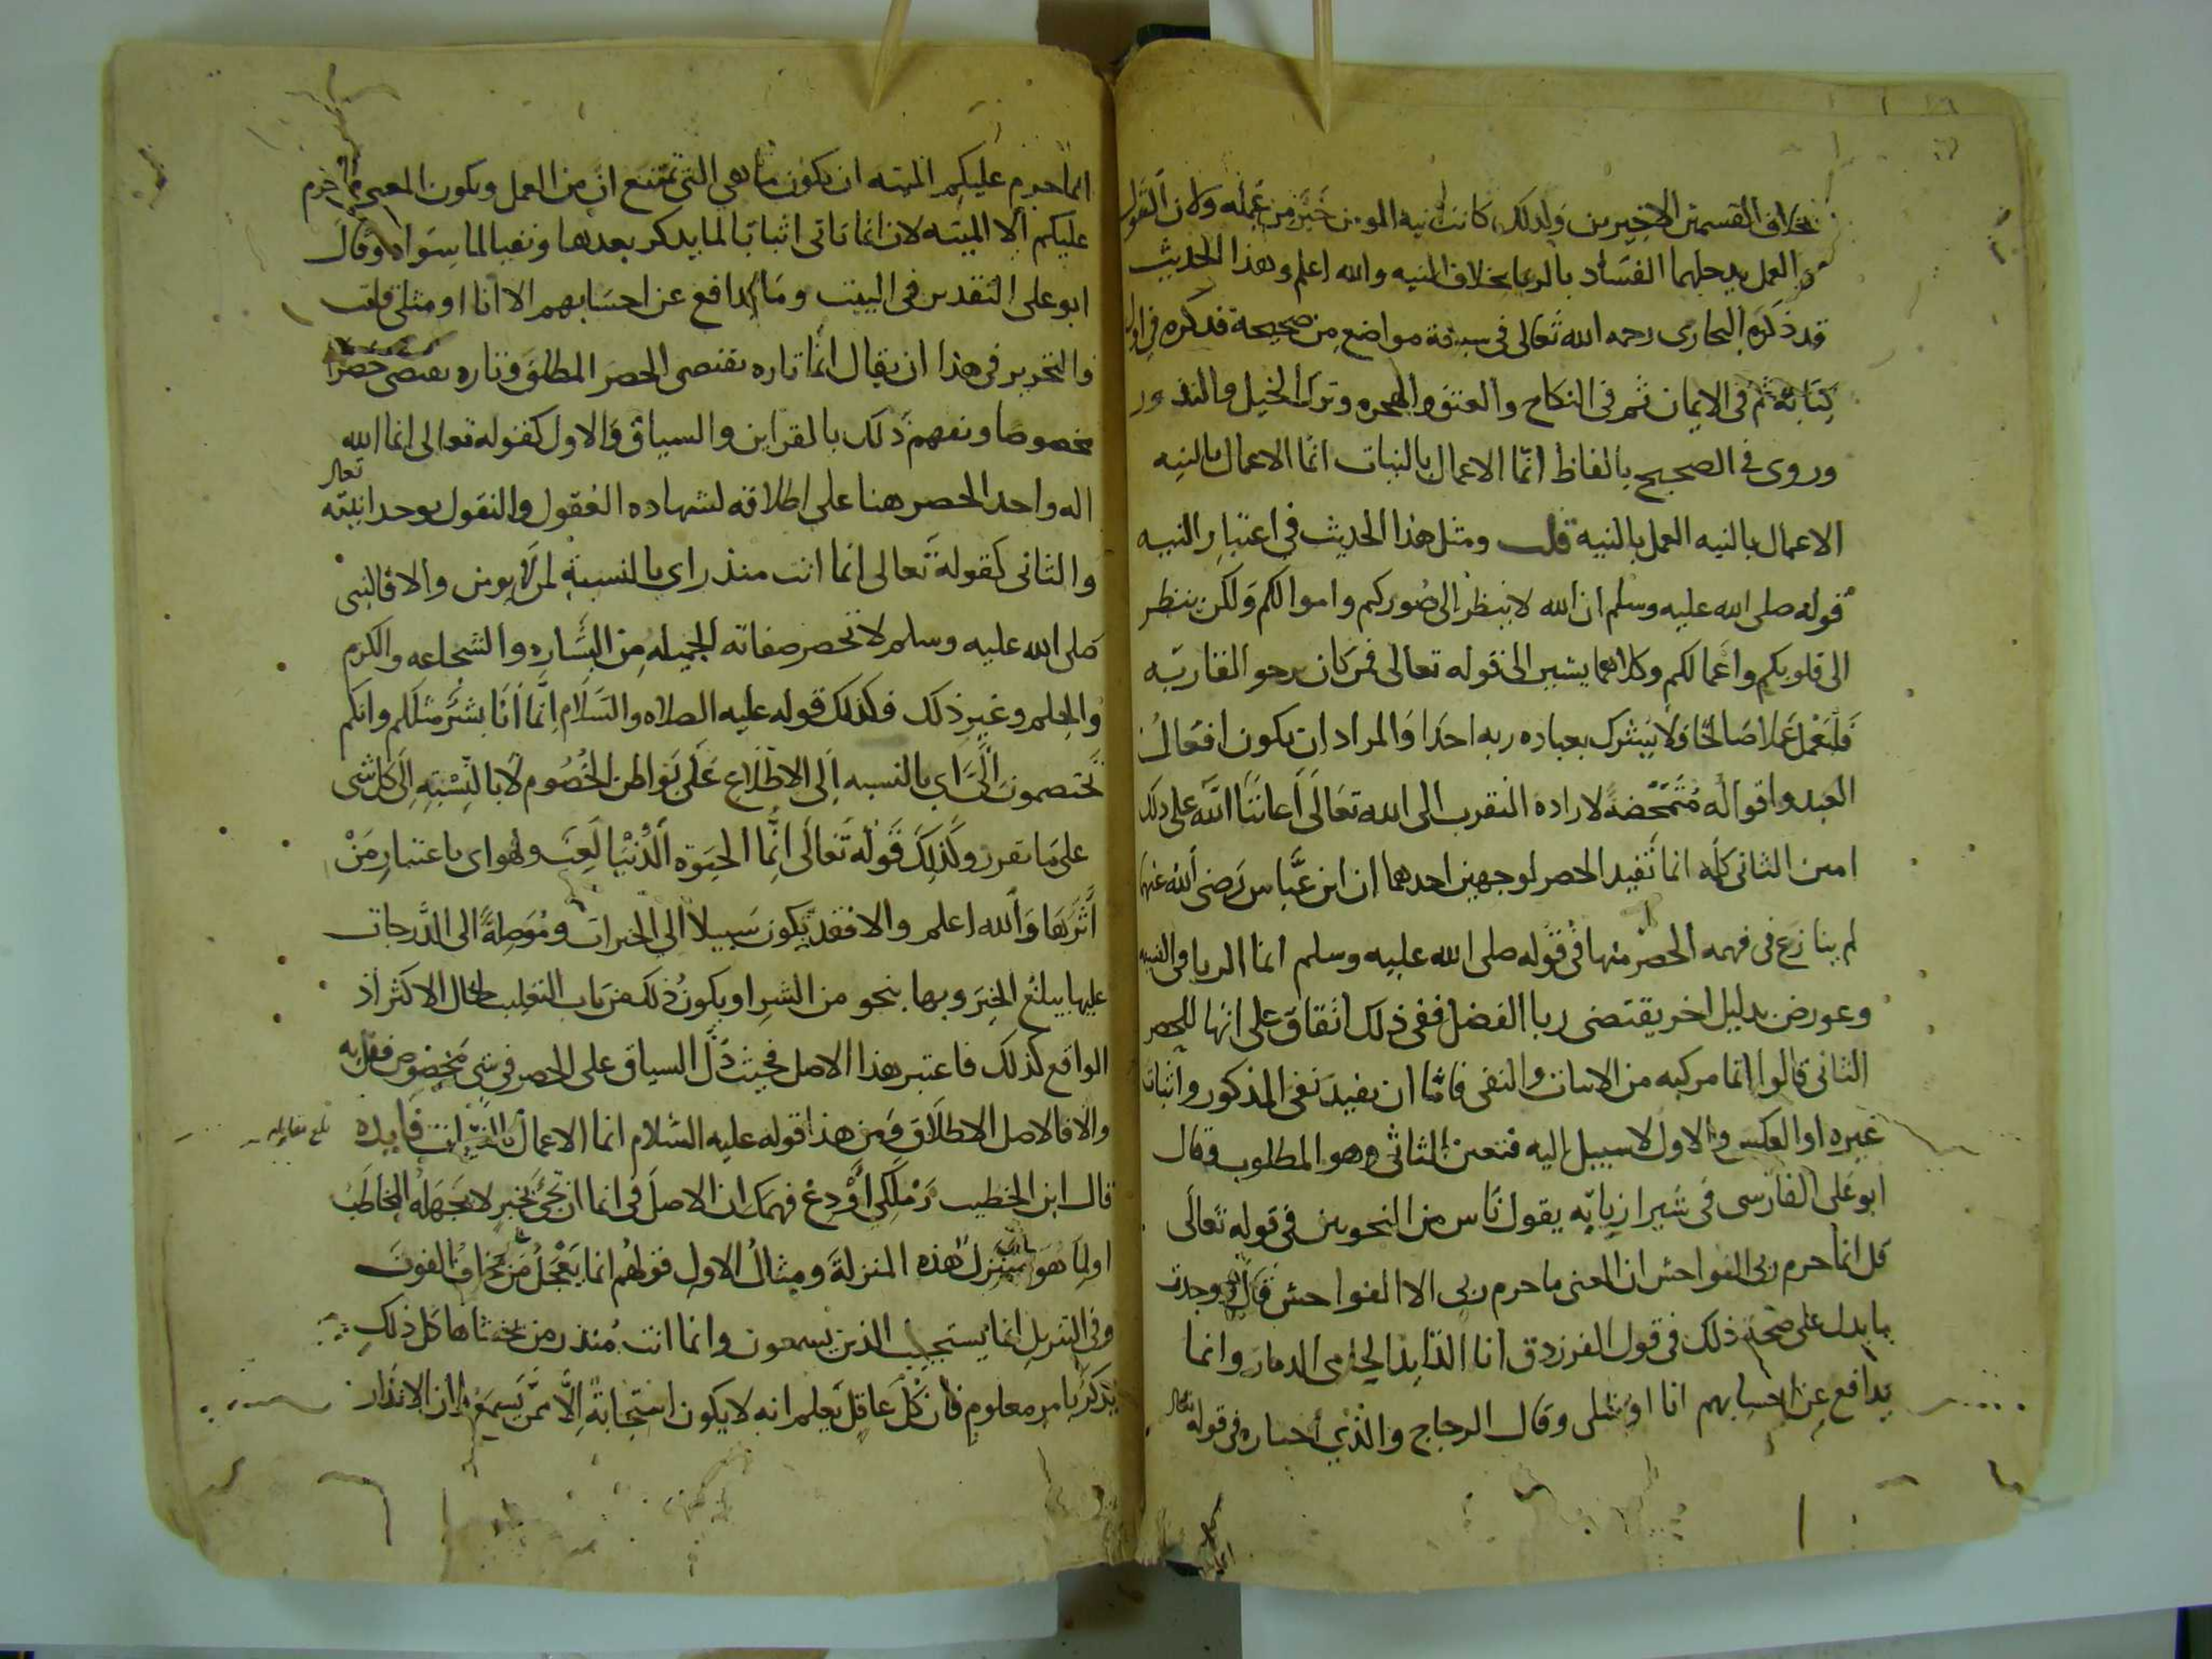 بخلاف القسمين الاخيرين ولذلك كانت نية المومن خير من عمله ولان القول
والعمل يدخلهما الفساد بالريا بخلاف النيه والله اعلم وهذا الحديث
قد ذكره البخارى رحمه الله تعالى فى سبعة مواضع من صحيحه فذكره فى اول
كتابه ثم فى الايمان ثم فى النكاح والعتق والهجره وترك الحيل والنذور
وروى فى الصحيح بالفاظ انما الاعمال بالنيات انما الاعمال بالنيه
الاعمال بالنيه العمل بالنية قلت ومثل هذا الحديث فى اعتبار النيه
قوله صلى الله عليه وسلم ان الله لا ينظر الى صوركم واموالكم ولكن ينظر
الى قلوبكم واعمالكم وكلاهما يشير الى قوله تعالى فمن كان يرجو لقا ربه
فليعمل عملا صالحا ولا يشرك بعباده ربه احدا والمراد ان يكون افعال
العبد واقواله متمحضة لاراده التقرب الى الله تعالى اعاننا الله على ذلك
امين الثانى كلمه انما تفيد الحصر لوجهين احدهما ان ابن عباس رضى الله عنهما
لم ينازع فى فهمه الحصر منها فى قوله صلى الله عليه وسلم انما الربا فى النسيه
وعورض بدليل اخر يقتضى ربا الفضل ففى ذلك اتفاق على انها للحصر
الثانى قالوا انما مركبه من الاثبات والنفى فاما ان يفيد نفى المذكور واثبات
غيره او العكس والاول لا سبيل اليه فتعين الثانى وهو المطلوب وقال
ابو على الفارسى فى شيرازياته يقول ناس من النحويين فى قوله تعالى
قل انما حرم ربى الفواحش ان المعنى ما حرم ربى الا الفواحش قال ووجدت
ما يدل على صحة ذلك فى قول الفرزدق انا الذايد الحامى الدمار وانما
يدافع عن احسابهم انا او مثلى وقال الزجاج والذى اختاره فى قوله تعالى
انما حرم عليكم الميته ان يكون ما هى التى تمنع ان من العمل ويكون المعنى ما حرم
عليكم الا الميته لان انما تاتى اثباتا لما يذكر بعدها ونفيا لما سواه وقال
ابو على التقدير فى البيت وما يدافع عن احسابهم الا انا او مثلى قلت
والتحرير فى هذا ان يقال انما تاره تقتضى الحصر المطلق وتاره تقتضى حصرا
مخصوصا ويفهم ذلك بالقراين والسياق والاول كقوله تعالى انما الله
اله واحد الحصر هنا على اطلاقه لشهاده العقول والنقول بوحدانيته تعالى
والثانى كقوله تعالى انما انت منذر اى بالنسبة لمن لا يومن والا فالنبى
صلى الله عليه وسلم لا تحصر صفاته الجميله من البشاره والشجاعه والكرم
والحلم وغير ذلك فكذلك قوله عليه الصلاه والسلام انما انا بشر مثلكم وانكم
تختصمون الى اى بالنسبه الى الاطلاع على بواطن الخصوم لا بالنسبة الى كل شى
على ما تقرر وكذلك قوله تعالى انما الحيوة الدنيا لعب ولهو اى باعتبار من
اثرها والله اعلم والا فقد يكون سبيلا الى الخيرات وموصلة الى الدرجات
عليها يبلغ الخير وبها ينجو من الشر او يكون ذلك من باب التغليب لحال الاكثر اذ
الواقع كذلك فاعتبر هذا الاصل فحيث دل السياق على الحصر فى شى مخصوص فقل به
والا فالاصل الاطلاق ومن هذا قوله عليه السلام انما الاعمال بالنيات فايده
قال ابن الخطيب زملكى اودع فهمك ان الاصل فى انما ان تجى لخبر لا يجهله المخاطب
او لما هو منزل هذه المنزلة ومثال الاول قولهم انما يعجل من يخاف الفوت
وفى التنزيل انما يستجيب الذين يسمعون وانما انت منذر من يخشاها كل ذلك
يذكر بامر معلوم فان كل عاقل يعلم انه لا يكون استجابة الا ممن يسمع وان الانذار